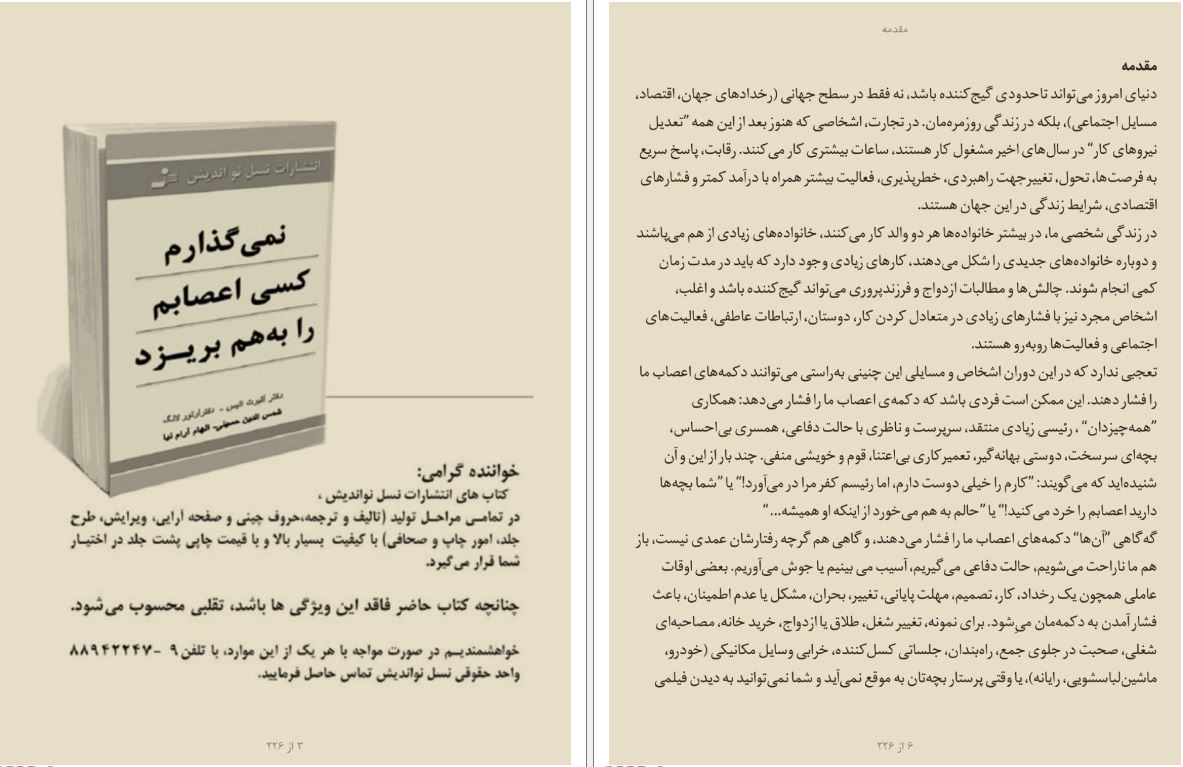 مقدمه
مقدمه
دنیای امروز می‌تواند تاحدودی گیج‌کننده باشد، نه فقط در سطح جهانی (رخدادهای جهان، اقتصاد،
مسایل اجتماعی)، بلکه در زندگی روزمره‌مان. در تجارت، اشخاصی که هنوز بعد از این همه ”تعدیل
نیروهای کار“ در سال‌های اخیر مشغول کار هستند، ساعات بیشتری کار می‌کنند. رقابت، پاسخ سریع
به فرصت‌ها، تحول، تغییرجهت راهبردی، خطرپذیری، فعالیت بیشتر همراه با درآمد کمتر و فشارهای
اقتصادی، شرایط زندگی در این جهان هستند.
در زندگی شخصی ما، در بیشتر خانواده‌ها هر دو والد کار می‌کنند، خانواده‌های زیادی از هم می‌پاشند
و دوباره خانواده‌های جدیدی را شکل می‌دهند، کارهای زیادی وجود دارد که باید در مدت زمان
کمی انجام شوند. چالش‌ها و مطالبات ازدواج و فرزندپروری می‌تواند گیج‌کننده باشد و اغلب،
اشخاص مجرد نیز با فشارهای زیادی در متعادل کردن کار، دوستان، ارتباطات عاطفی، فعالیت‌های
اجتماعی و فعالیت‌ها روبه‌رو هستند.
تعجبی ندارد که در این دوران اشخاص و مسایلی این چنینی به‌راستی می‌توانند دکمه‌های اعصاب ما
را فشار دهند. این ممکن است فردی باشد که دکمه‌ی اعصاب ما را فشار می‌دهد: همکاری
”همه‌چیزدان“ ، رئیسی زیادی منتقد، سرپرست و ناظری با حالت دفاعی، همسری بی‌احساس،
بچه‌ای سرسخت، دوستی بهانه‌گیر، تعمیرکاری بی‌اعتنا، قوم و خویشی منفی. چند بار از این و آن
شنیده‌اید که می‌گویند: ”کارم را خیلی دوست دارم، اما رئیسم کفر مرا در می‌آورد!“ یا ”شما بچه‌ها
دارید اعصابم را خرد می‌کنید!“ یا ”حالم به هم می‌خورد از اینکه او همیشه...“
گه‌گاهی ”آن‌ها“ دکمه‌های اعصاب ما را فشار می‌دهند، و گاهی هم گرچه رفتارشان عمدی نیست، باز
هم ما ناراحت می‌شویم، حالت دفاعی می‌گیریم، آسیب می بینیم یا جوش می‌آوریم. بعضی اوقات
عاملی همچون یک رخداد، کار، تصمیم، مهلت پایانی، تغییر، بحران، مشکل یا عدم اطمینان، باعث
فشار آمدن به دکمه‌مان می‌شود. برای نمونه، تغییر شغل، طلاق یا ازدواج، خرید خانه، مصاحبه‌ای
شغلی، صحبت در جلوی جمع، راه‌بندان، جلساتی کسل‌کننده، خرابی وسایل مکانیکی (خودرو،
ماشین‌لباسشویی، رایانه)، یا وقتی پرستار بچه‌تان به موقع نمی‌آید و شما نمی‌توانید به دیدن فیلمی
۶ از ۲۲۶
انتشارات نسل نو اندیش
نمی‌گذارم
کسی اعصابم
را به‌هم بریـزد
دکتر آلبرت الیس - دکترآرتور لانگ
شمس الدین حسینی- الهام آرام نیا
خواننده گرامی:
کتاب های انتشارات نسل نواندیش ،
در تمامـی مراحـل تولید (تالیف و ترجمه،حروف چینی و صفحه آرایی، ویرایش، طرح
جلد، امور چاپ و صحافی) با کیفیت بسیار بالا و با قیمت چاپی پشت جلد در اختیـار
شما قرار می‌گیرد.
چنانچه کتاب حاضر فاقد این ویژگی ها باشد، تقلبی محسوب می‌شود.
خواهشمندیـم در صورت مواجه با هر یک از این موارد، با تلفن ۹ - ۸۸۹۴۲۲۴۷
واحد حقوقی نسل نواندیش تماس حاصل فرمایید.
۳ از ۲۲۶